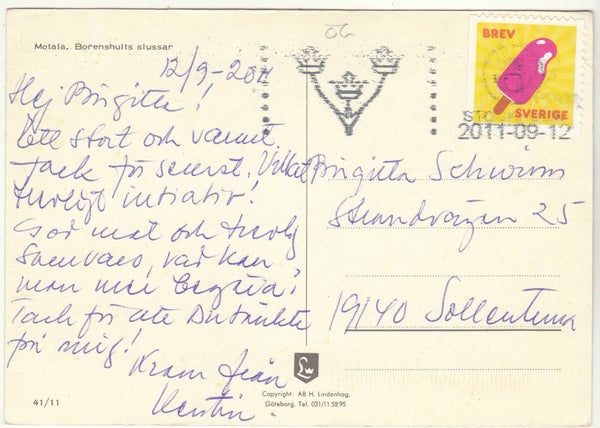 Motala. Borenshults slussar
12/9-2011
Hej Birgitta!
Ett stort och varmt
Tack för senast. Vilket
trevligt initiativ!
God mat och trevlig
samvaro, vad kan
man mer begära?
Tack för att Du tänkte
på mig!
Kram från
Kerstin.
41/11
BREV
SVERIGE
2011-09-12
Birgitta Schwirm
Strandvägen 25
19140 Sollentuna
Copyright: AB H. Lindenhag,
Göteborg. Tel. 031/11 58 95